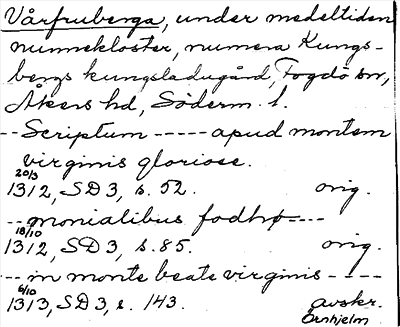 Vårfruberga, under medeltiden
nunnekloster, numera Kungs-
bergs kungsladugård, Fogdö sn,
Åkers hd, Söderm. l.
-- Scriptum ----- apud montem
virginis gloriose.
20/3
1312, SD 3, s. 52. orig.
-- monialibus fodhø ---
18/10
1312, SD 3, s. 85. orig.
--- in monte beate virginis ----
6/10
1313, SD 3, s. 143. avskr.
Örnhjelm